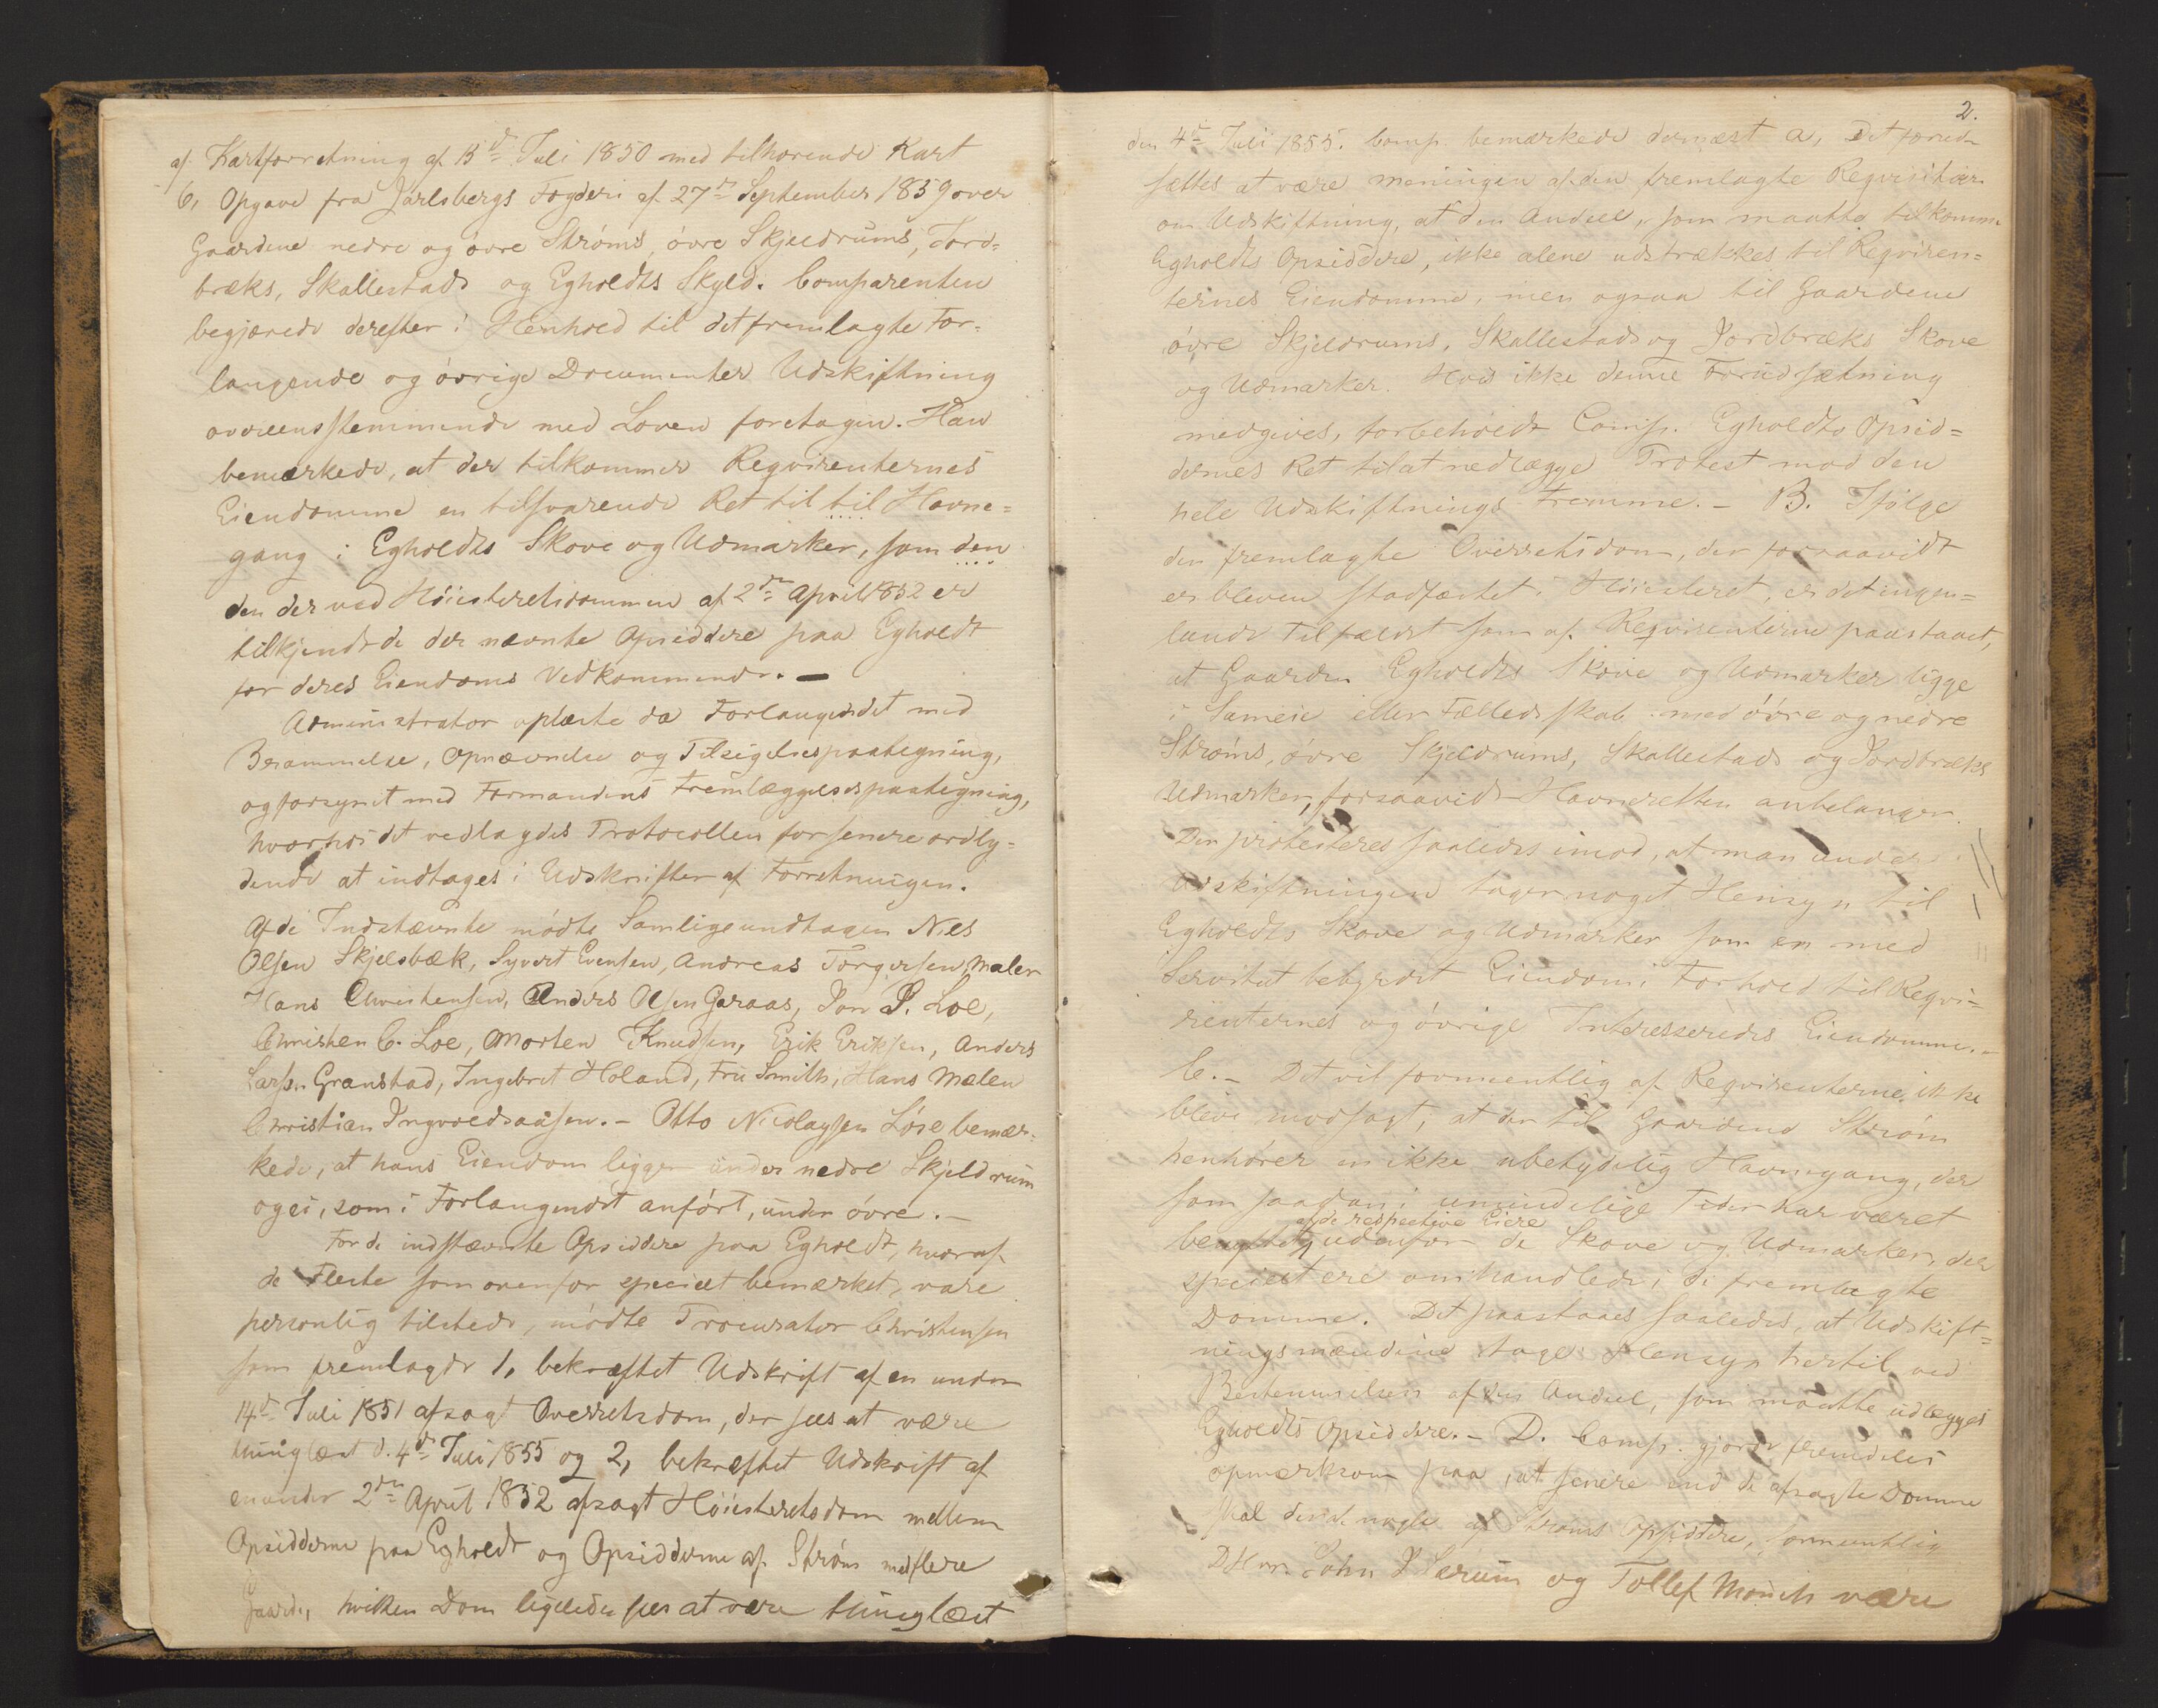 af Kartforretning af 15de Juli 1850 med tilhørende Kart
6, Opgave fra Jarlsbergs Fogderi af 27de September 1859 over
Gaardene nedre og øvre Strøms, øvre Skjeldrums, Jord=
bræks, Skallestads og Egholdts Skyld. Comparenten
begjærede derefter i Henhold til det fremlagte For=
langende og øvrige Documenter Udskiftning
overeensstemmende med Loven foretagen. Han
bemærkede, at der tilkommer Reqvirenternes
Eiendomme en tilsvarende Ret til til Havne=
gang i Egholdts Skove og Udmarker, som den
den der ved Høiesteretsdommen af 2den April 1852 er
tilkjendt de der nævnte Opsiddere paa Egholdt
for deres Eiendoms Vedkommende. —
Administrator oplæste da Forlangendet med
Berammelse, Opnævnelse og Tilsigelsespaategning,
og forsynet med Formandens Fremlæggelsespaategning,
hvorhos det vedlagdes Protocollen for senere ordly=
dende at indtages i Udskrifter af Forretningen.
Af de Indstævnte mødte Samlige undtagen Nils
Olsen Skjelsbæk, Syvert Evensen, Andreas Torgersen, Maler
Hans Christensen, Anders Olsen Garaas, Jon P. Loe,
Christen C. Loe, Morten Knudsen, Erik Eriksen, Anders
Larsn. Granstad, Ingebret Holand, Fru Smith, Hans Mælen
Christian Ingvoldsaasen. — Otto Nicolaysen Løse bemær=
kede, at hans Eiendom ligger under nedre Skjeldrum
og ei, som i Forlangendet anført, under øvre. —
For de indstævnte Opsiddere paa Egholdt, hvoraf
de Fleste som ovenfor specielt bemærket, vare
personlig tilstede, mødte Procurator Christensen
som fremlagde 1, bekræftet Udskrift af en under
14de Juli 1851 afsagt Overretsdom, der sees at være
thinglæst d. 4de Juli 1855 og 2, bekræftet Udskrift af
en under 2den April 1852 afsagt Høiesteretsdom mellem
Opsidderne paa Egholdt og Opsidderne af Strøm med flere
Gaarde, hvilken Dom ligeledes sees at være thinglæst
2.
den 4de Juli 1855. Comp. bemærkede dernæst A, Det forud=
sættes at være meningen af den fremlagte Reqvisition
om Udskiftning, at den Andeel, som maatte tilkomme
Egholdts Opsiddere, ikke alene udstrækkes til Reqviren=
ternes Eiendomme, men ogsaa til Gaardene
øvre Skjeldrums, Skallestads og Jordbræks Skove
og Udmarker. Hvis ikke denne Forudsætning
medgives, forbeholdt Comp. Egholdts Opsid=
dernes Ret til at nedlægge Protest mod den
hele Udskiftnings Fremme. — B. Ifølge
den fremlagte Overretsdom, der forsaavidt
er bleven stadfæstet i Høiesteret, er det ingen=
lunde Tilfældet som af Reqvirenterne paastaaet,
at Gaarden Egholdts Skove og Udmarker ligge
i Sameie eller Fælledsskab med øvre og nedre
Strøms, øvre Skjeldrums, Skallestads og Jordbræks
Udmarker, forsaavidt Havneretten anbelanger.
Der protesteres saaledes imod, at man under
Udskiftningen tager noget Hensyn til
Egholdts Skove og Udmarker som en med
Servitut bebyrdet Eiendom i Forhold til Reqvi=
renternes og øvrige Interesseredes Eiendomme. —
C. — Det vil formeentlig af Reqvirenterne ikke
blive modsagt, at der til Gaardene Strøm
henhører en ikke ubetydelig Havnegang, der
som saadan i umindelige Tider har været
af de respective Eiere
benyttet udenfor de Skove og Udmarker, der
specielt ere omhandlede i de fremlagte
Domme. Det paastaaes saaledes, at Udskift=
ningsmændene tage Hensyn hertil ved
Bestemmelsen af den Andeel, som maatte udlægges
Egholdts Opsiddere. — D. Comp. gjorde fremdeles
opmærksom paa, at senere end de afsagte Domme
skal der af nogle af Strøms Opsiddere, formeentlig
DHrr. John P Særum og Tollef Mouch være